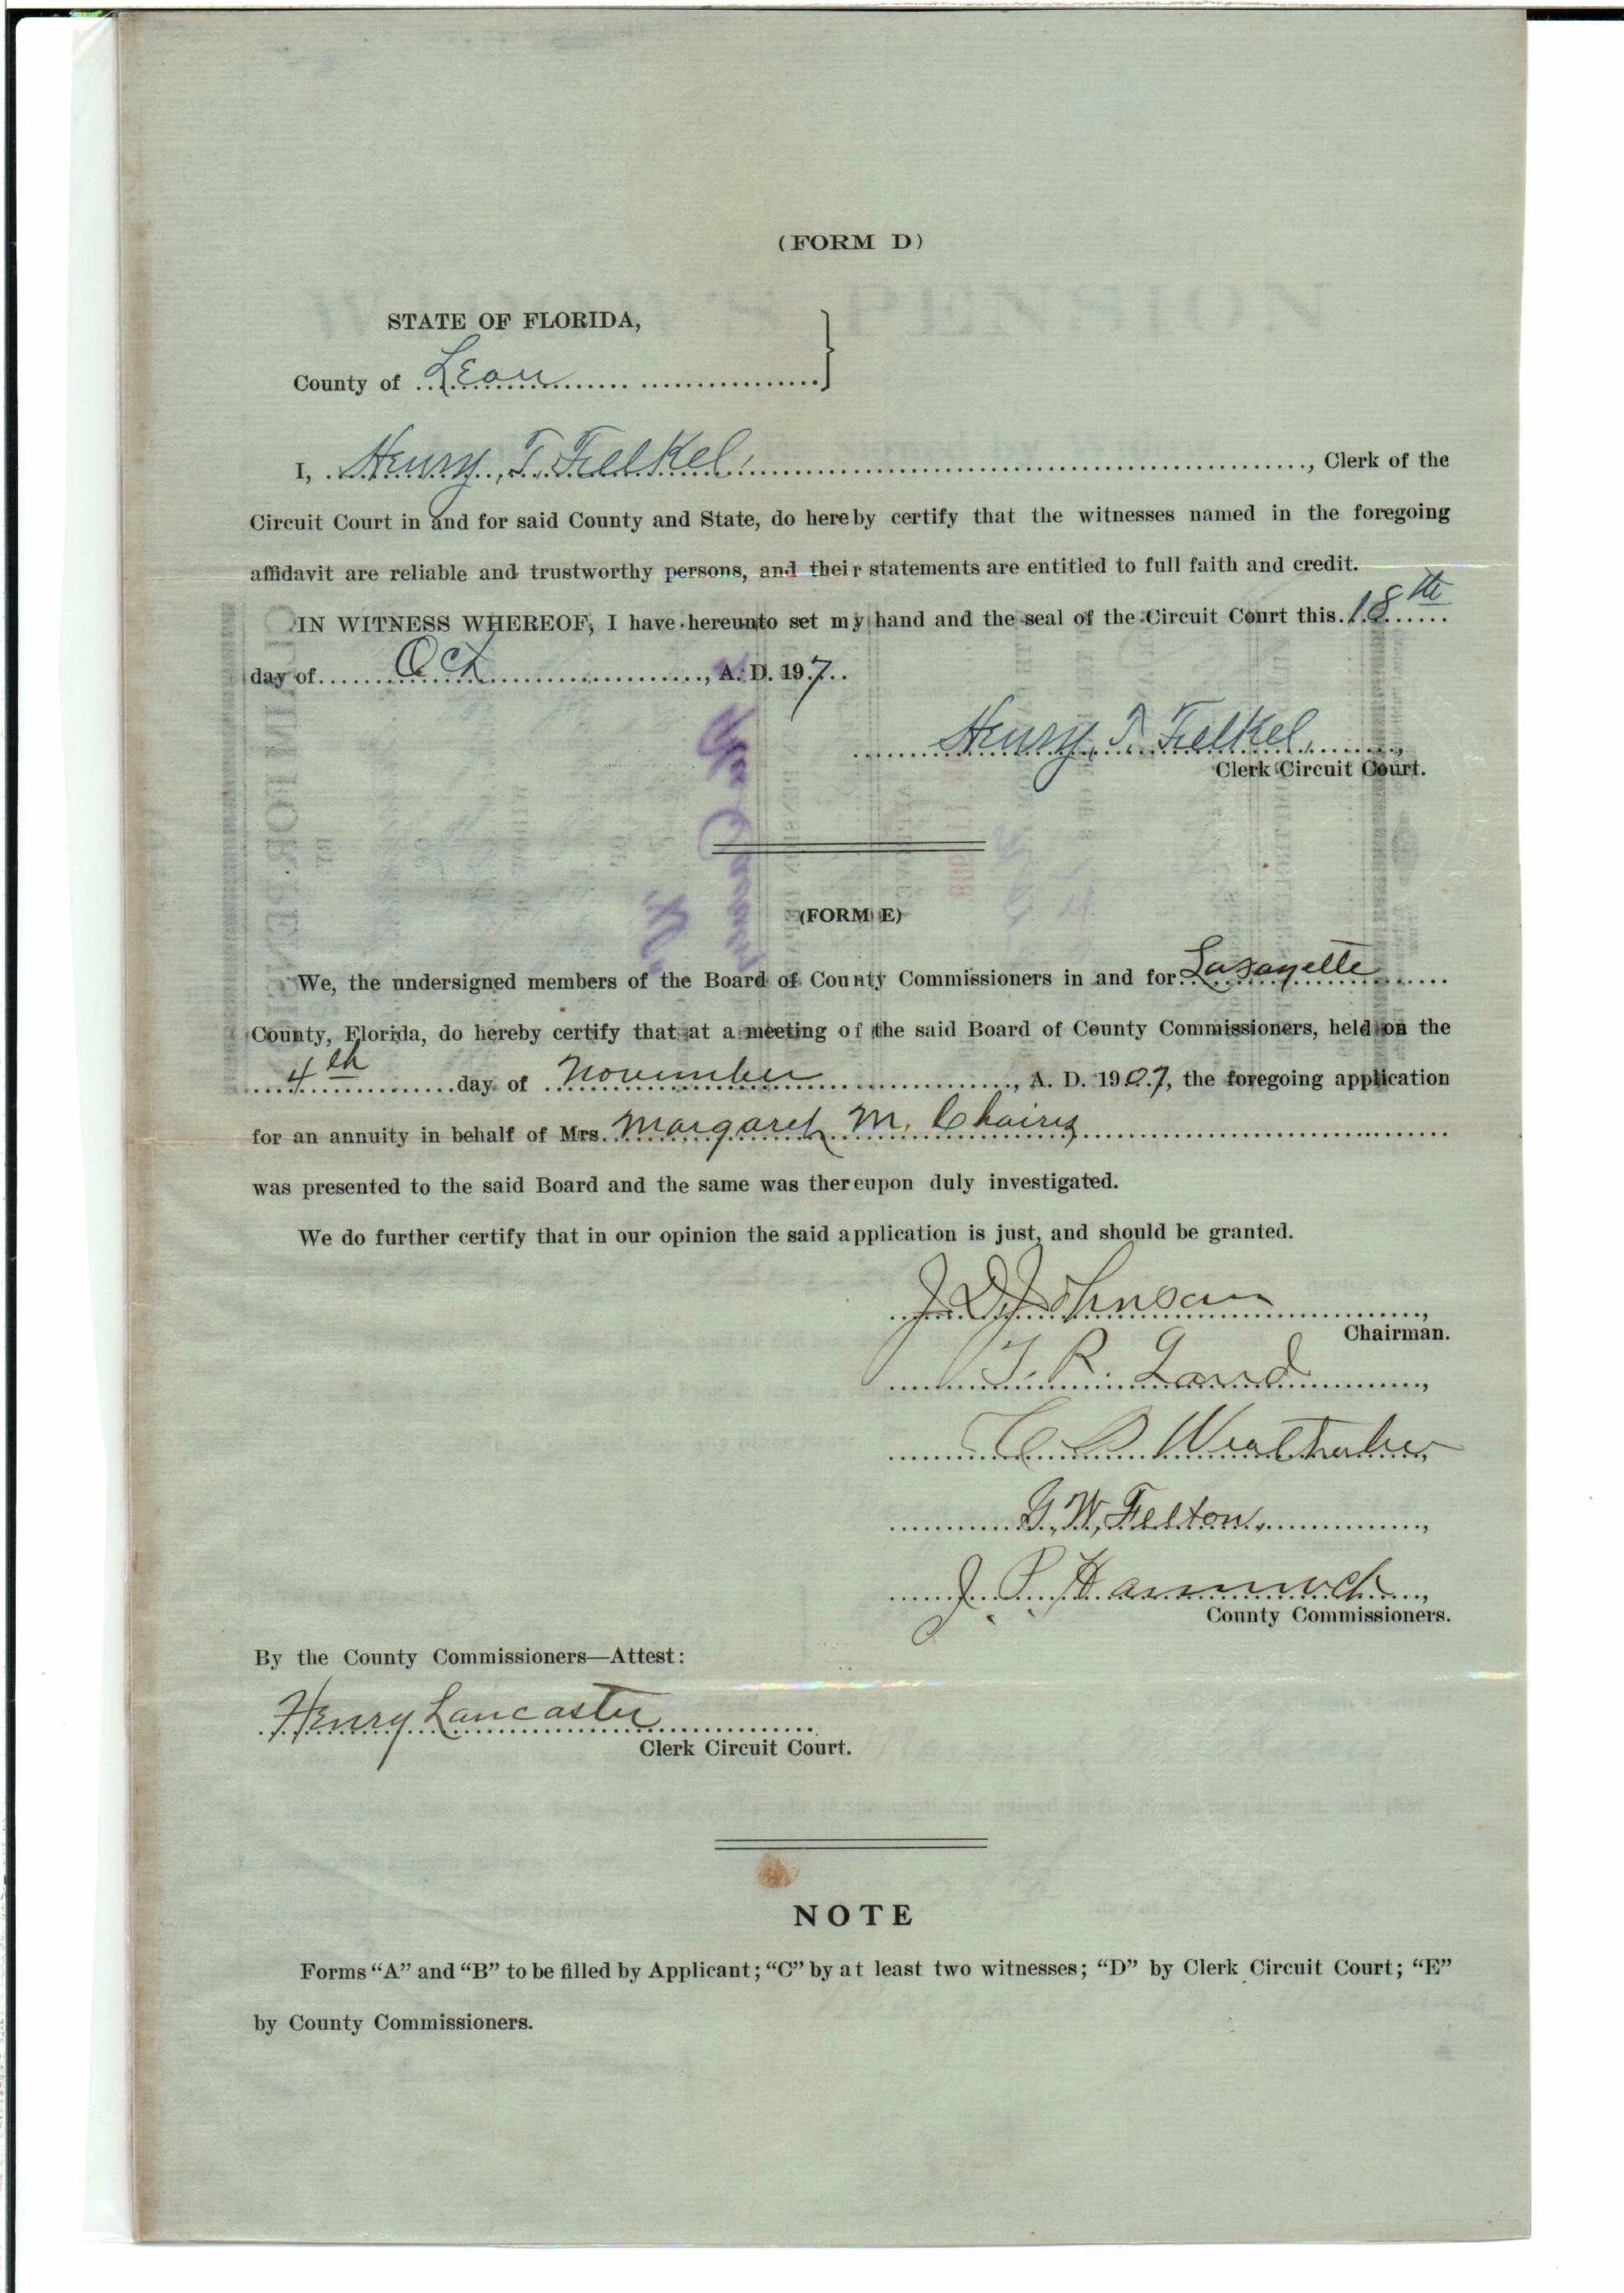 (FORM D)
STATE OF FLORIDA,
County of Leon
I, Henry T. Felkel, Clerk of the
Circuit Court in and for said County and State, do hereby certify that the witnesses named in the foregoing
affidavit are reliable and trustworthy persons, and their statements are entitled to full faith and credit.
IN WITNESS WHEREOF, I have hereunto set my hand and the seal of the Circuit Court this 18th
day of Oct, A. D. 197
Henry T. Felkel,
Clerk Circuit Court.
(FORM E)
We, the undersigned members of the Board of County Commissioners in and for Lafayette
County, Florida, do hereby certify that at a meeting of the said Board of County Commissioners, held on the
4th day of November, A. D. 1907, the foregoing application
for an annuity in behalf of Mrs. Margaret M. Chaires
was presented to the said Board and the same was thereupon duly investigated.
We do further certify that in our opinion the said application is just, and should be granted.
J D Johnson,
Chairman.
T. R.
C.
G. W. Felton,
J. P. Hammock,
County Commissioners.
By the County Commissioners—Attest:
Henry Lancaster
Clerk Circuit Court.
NOTE
Forms “A” and “B” to be filled by Applicant; “C” by at least two witnesses; “D” by Clerk Circuit Court; “E”
by County Commissioners.